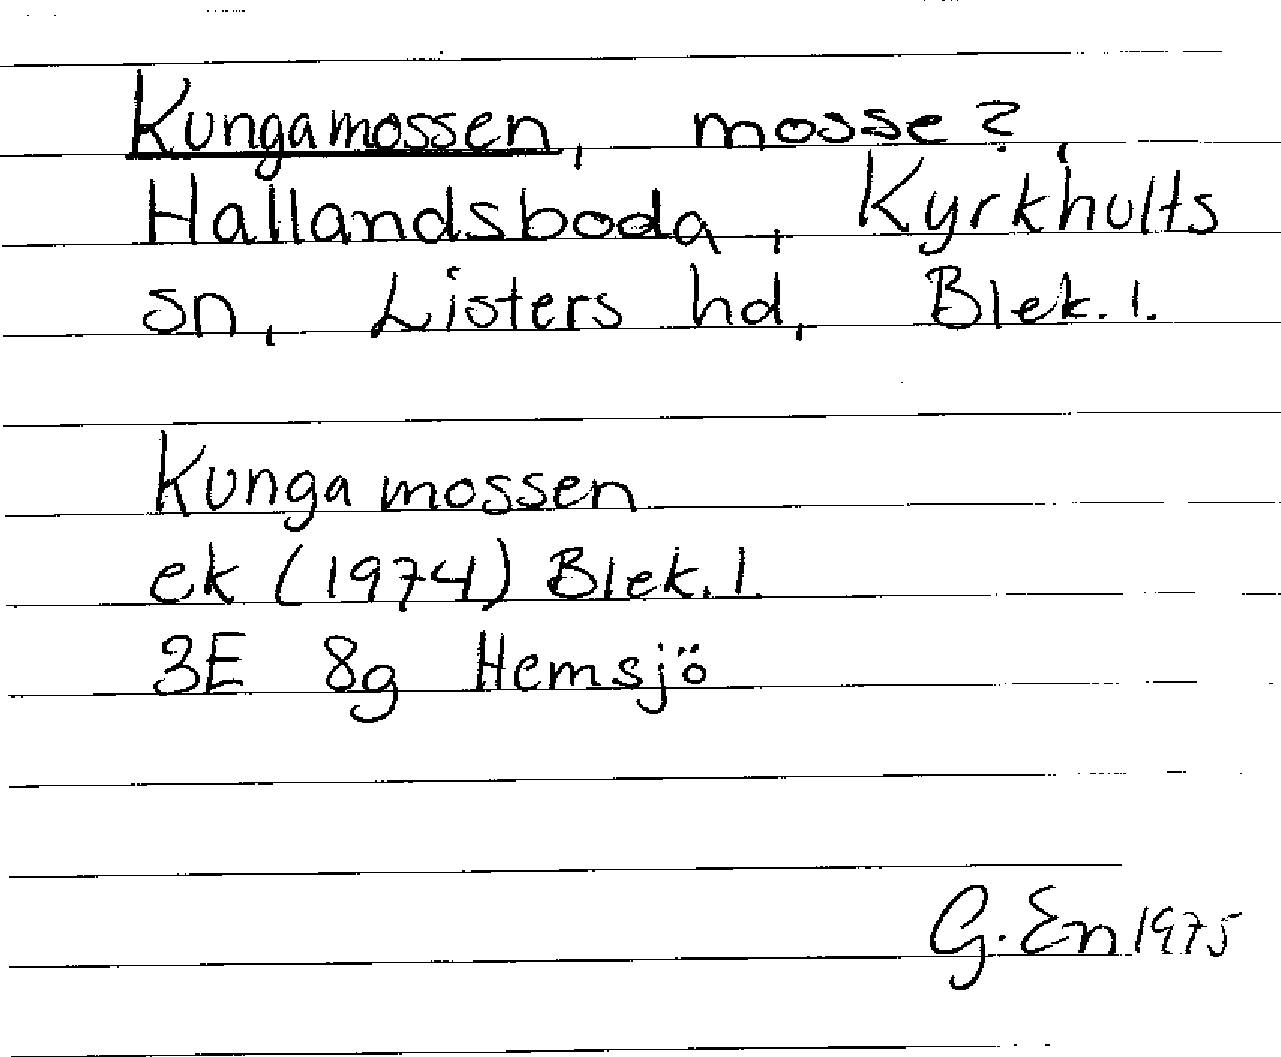 Kungamossen, mosse?,
Hallandsboda, Kyrkhults
sn, Listers hd, Blek. l.
Kungamossen
ek (1974) Blek. l.
3E 8g Hemsjö
G. En 1975